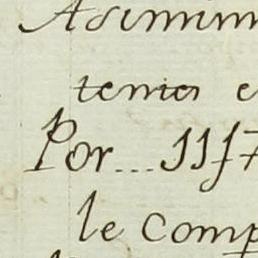 Asimim
tenies e
Por... 1177
le comp